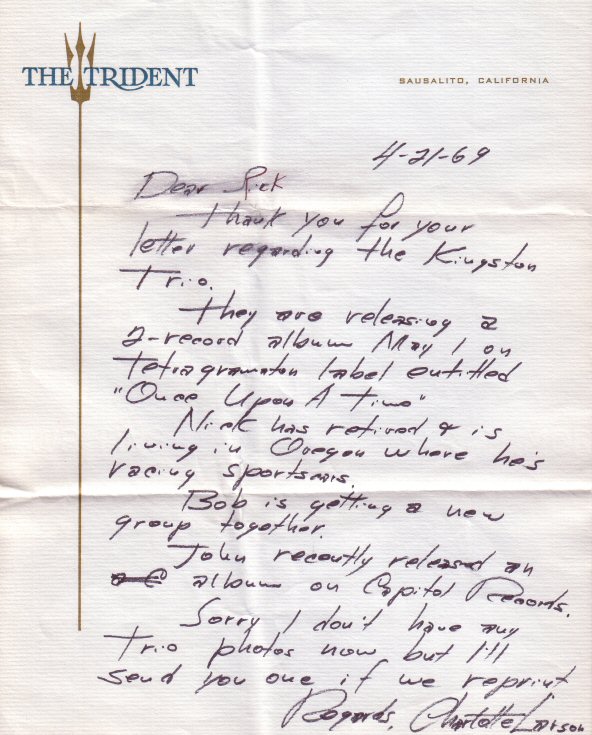 THE TRIDENT
SAUSALITO, CALIFORNIA
4-21-69
Dear Rick
Thank you for your
letter regarding the Kingston
Trio.
They are releasing a
2-record album May 1 on
Tetragramaton label entitled
"Once Upon A Time"
Nick has retired & is
living in Oregon where he's
racing sportscars.
Bob is getting a new
group together.
John recently released an
album on Capitol Records.
Sorry I don't have any
Trio photos now but I'll
send you one if we reprint
Regards, Charlotte Larson